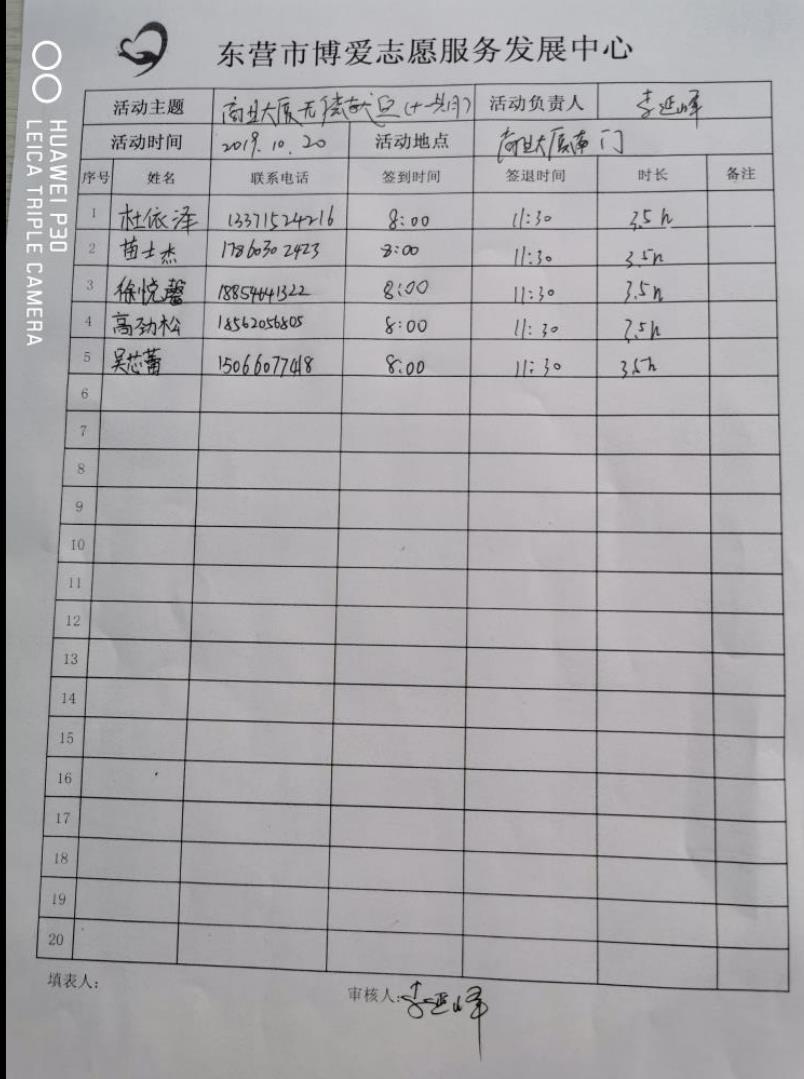 东营市博爱志愿服务发展中心
活动主题 商业大厦无偿献血(十一月) 活动负责人 李延峰
活动时间 2019.10.20 活动地点 商业大厦南门
序号 姓名 联系电话 签到时间 签退时间 时长 备注
1 杜依泽 13371524216 8:00 11:30 3.5h
2 苗士杰 17860302423 8:00 11:30 3.5h
3 徐悦馨 18854641322 8:00 11:30 3.5h
4 高劲松 18562056805 8:00 11:30 3.5h
5 吴芯蕾 15066077418 8:00 11:30 3.5h
6
7
8
9
10
11
12
13
14
15
16
17
18
19
20
填表人: 审核人:李延峰
HUAWEI P30
LEICA TRIPLE CAMERA